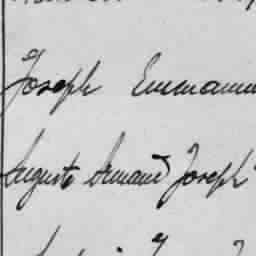 Joseph Emmanu
Auguste Armand Joseph